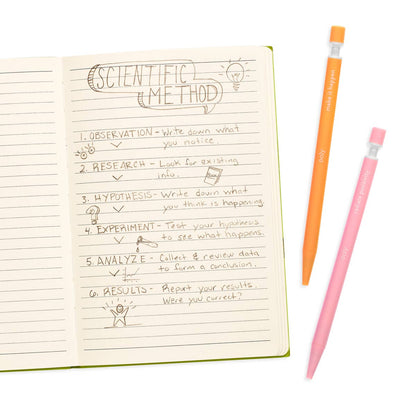 SCIENTIFIC
METHOD
1. OBSERVATION - Write down what
you notice.
2. RESEARCH - Look for existing
info.
3. HYPOTHESIS - Write down what
you think is happening.
4. EXPERIMENT - Test your hypothesis
to see what happens.
5. ANALYZE - Collect & review data
to form a conclusion.
6. RESULTS - Report your results.
Were you correct?
make it happen!